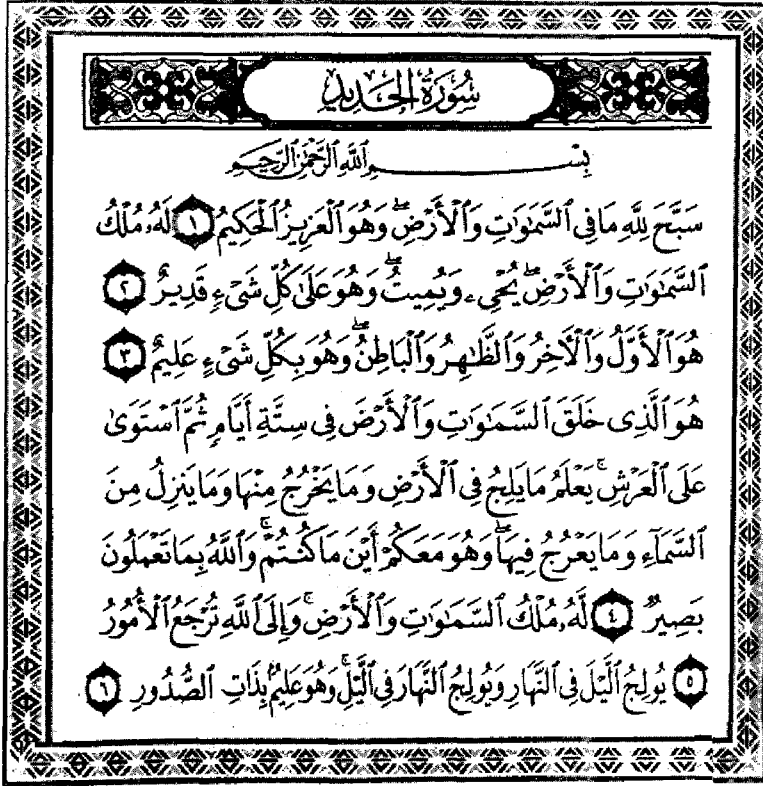 سُورَةُ الْحَدِيدِ
بِسْمِ اللَّهِ الرَّحْمَٰنِ الرَّحِيمِ
سَبَّحَ لِلَّهِ مَا فِي السَّمَٰوَٰتِ وَالْأَرْضِ ۖ وَهُوَ الْعَزِيزُ الْحَكِيمُ ١ لَهُۥ مُلْكُ
السَّمَٰوَٰتِ وَالْأَرْضِ ۖ يُحْىِۦ وَيُمِيتُ ۖ وَهُوَ عَلَىٰ كُلِّ شَىْءٍ قَدِيرٌ ٢
هُوَ الْأَوَّلُ وَالْآخِرُ وَالظَّٰهِرُ وَالْبَاطِنُ ۖ وَهُوَ بِكُلِّ شَىْءٍ عَلِيمٌ ٣
هُوَ الَّذِى خَلَقَ السَّمَٰوَٰتِ وَالْأَرْضَ فِى سِتَّةِ أَيَّامٍ ثُمَّ اسْتَوَىٰ
عَلَى الْعَرْشِ ۚ يَعْلَمُ مَا يَلِجُ فِى الْأَرْضِ وَمَا يَخْرُجُ مِنْهَا وَمَا يَنزِلُ مِنَ
السَّمَآءِ وَمَا يَعْرُجُ فِيهَا ۖ وَهُوَ مَعَكُمْ أَيْنَ مَا كُنتُمْ ۚ وَاللَّهُ بِمَا تَعْمَلُونَ
بَصِيرٌ ٤ لَّهُۥ مُلْكُ السَّمَٰوَٰتِ وَالْأَرْضِ ۚ وَإِلَى اللَّهِ تُرْجَعُ الْأُمُورُ
٥ يُولِجُ الَّيْلَ فِى النَّهَارِ وَيُولِجُ النَّهَارَ فِى الَّيْلِ ۚ وَهُوَ عَلِيمٌۢ بِذَاتِ الصُّدُورِ ٦